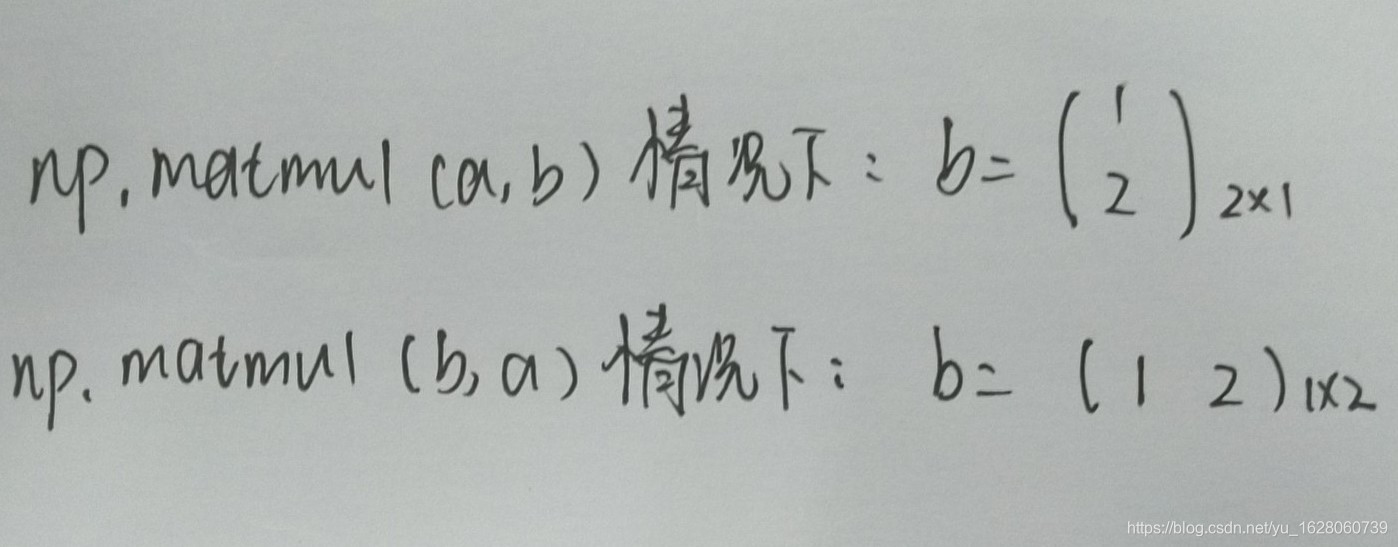 np.matmul (a,b) 情况下: b= ( 1 2 ) 2×1
np.matmul (b,a) 情况下: b= ( 1 2 ) 1×2
https://blog.csdn.net/yu_1628060739